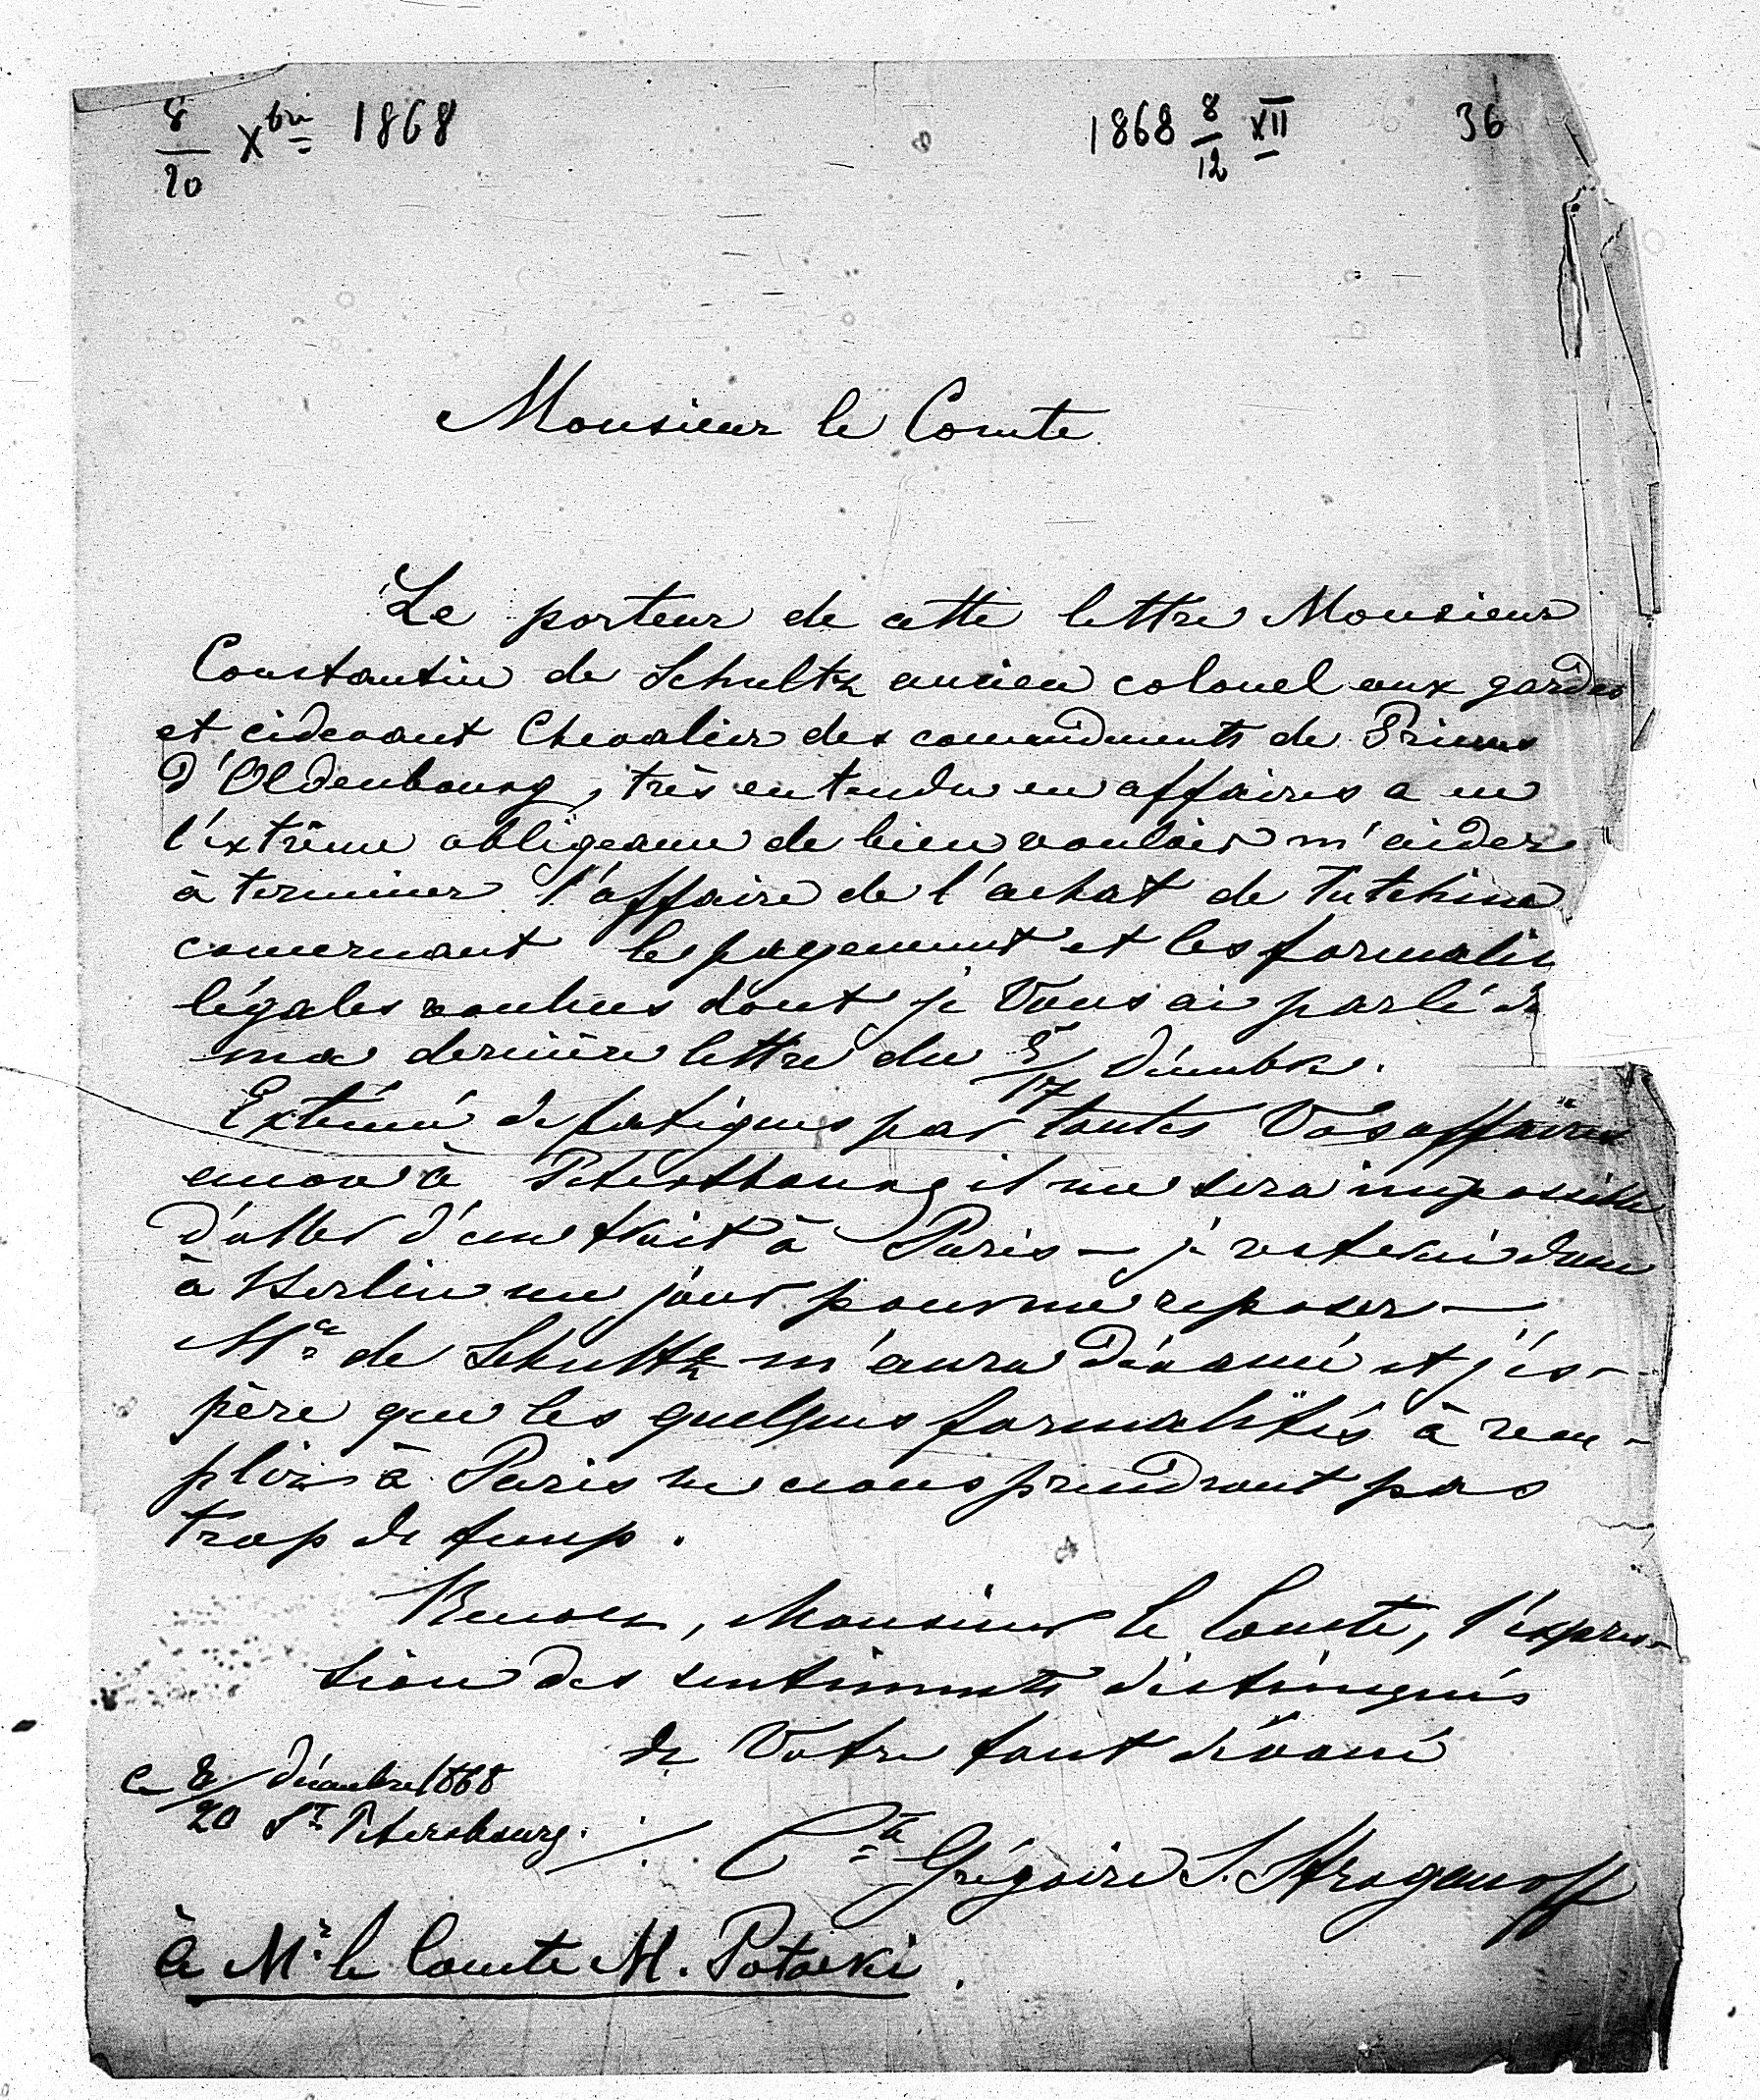 8/20 Xbre 1868
1868 8/12 XII 36
Monsieur le Comte
Le porteur de cette lettre Monsieur
Constantin de Schultz ancien colonel aux gardes
et cidevant Chevalier des commandments de Princes
d'Oldenbourg, très entendu en affaires a eu
l'extrême obligeance de bien vouloir m'aider
à terminer l'affaire de l'achat de Tutchine
concernant le payement et les formalit
légales voulues dont je Vous ai parlé d
ma dernière lettre du 5/17 Décembre.
Exténué de fatigues par toutes Vos affaires
encore à Petersbourg il me sera impossible
d'aller d'un trait à Paris – je resterai donc
à Berlin un jour pour me reposer –
Mr de Schultz m'aura dévancé et j'es-
père que les quelques formalités à rem-
plir à Paris ne nous prendront pas
trop de temp.
Recevez, Monsieur le Comte, l'expres-
sion des sentiments distingués
de Votre tout dévoué
Ce 8/20 décembre 1868
St Petersbourg.
Cte Grégoire S. Stroganoff
à Mr le Comte M. Potocki.